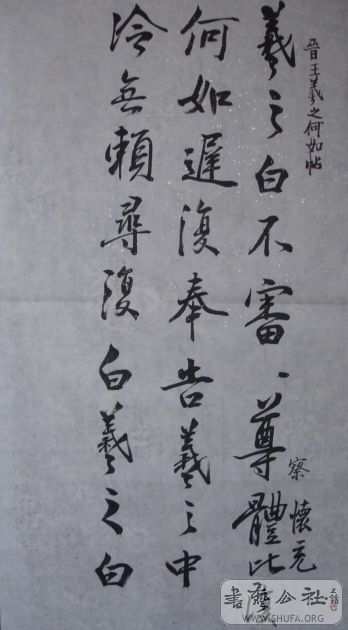 晉王羲之何如帖
羲之白不審、尊體比
察懷充
何如遲復奉告羲之中
冷無賴尋復白羲之白
書藝公社
WWW.SHUFA.ORG